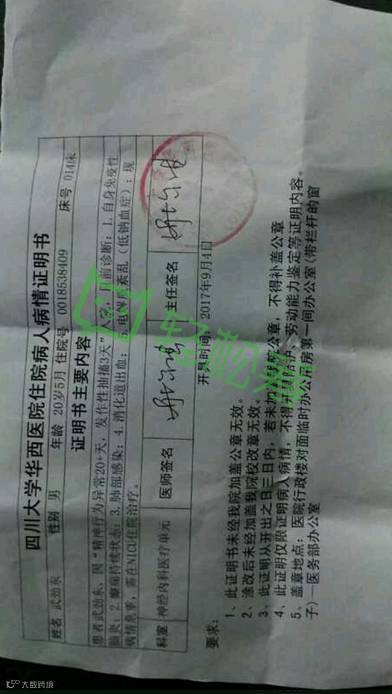 四川大学华西医院住院病人病情证明书
姓名 武劲东 性别 男 年龄 20岁5月 住院号 0018538409 床号 014床
证明书主要内容
患者武劲东，因“精神行为异常20+天，发作性抽搐3天”入院，目前诊断：1.自身免疫性
脑炎；2.癫痫持续状态；3.肺部感染；4.消化道出血；5.电解质紊乱（低钠血症）；现
病情危重，需在NICU住院治疗。
科室 神经内科医疗单元 医师签名 主任签名
开具时间：2017年9月4日
要求：
1、此证明书未经我院加盖公章无效。
2、涂改后未经加盖我院校改章无效。
3、此证明从开出之日三日内，若未加盖我院公章，不得补盖公章
4、此证明仅限证明病人病情，不得开具陪护、劳动能力鉴定等证明内容。
5、盖章地点：医院行政楼对面临时办公用房第一间办公室(带栏杆的窗
子)—医务部办公室
轻松筹
大数跨境